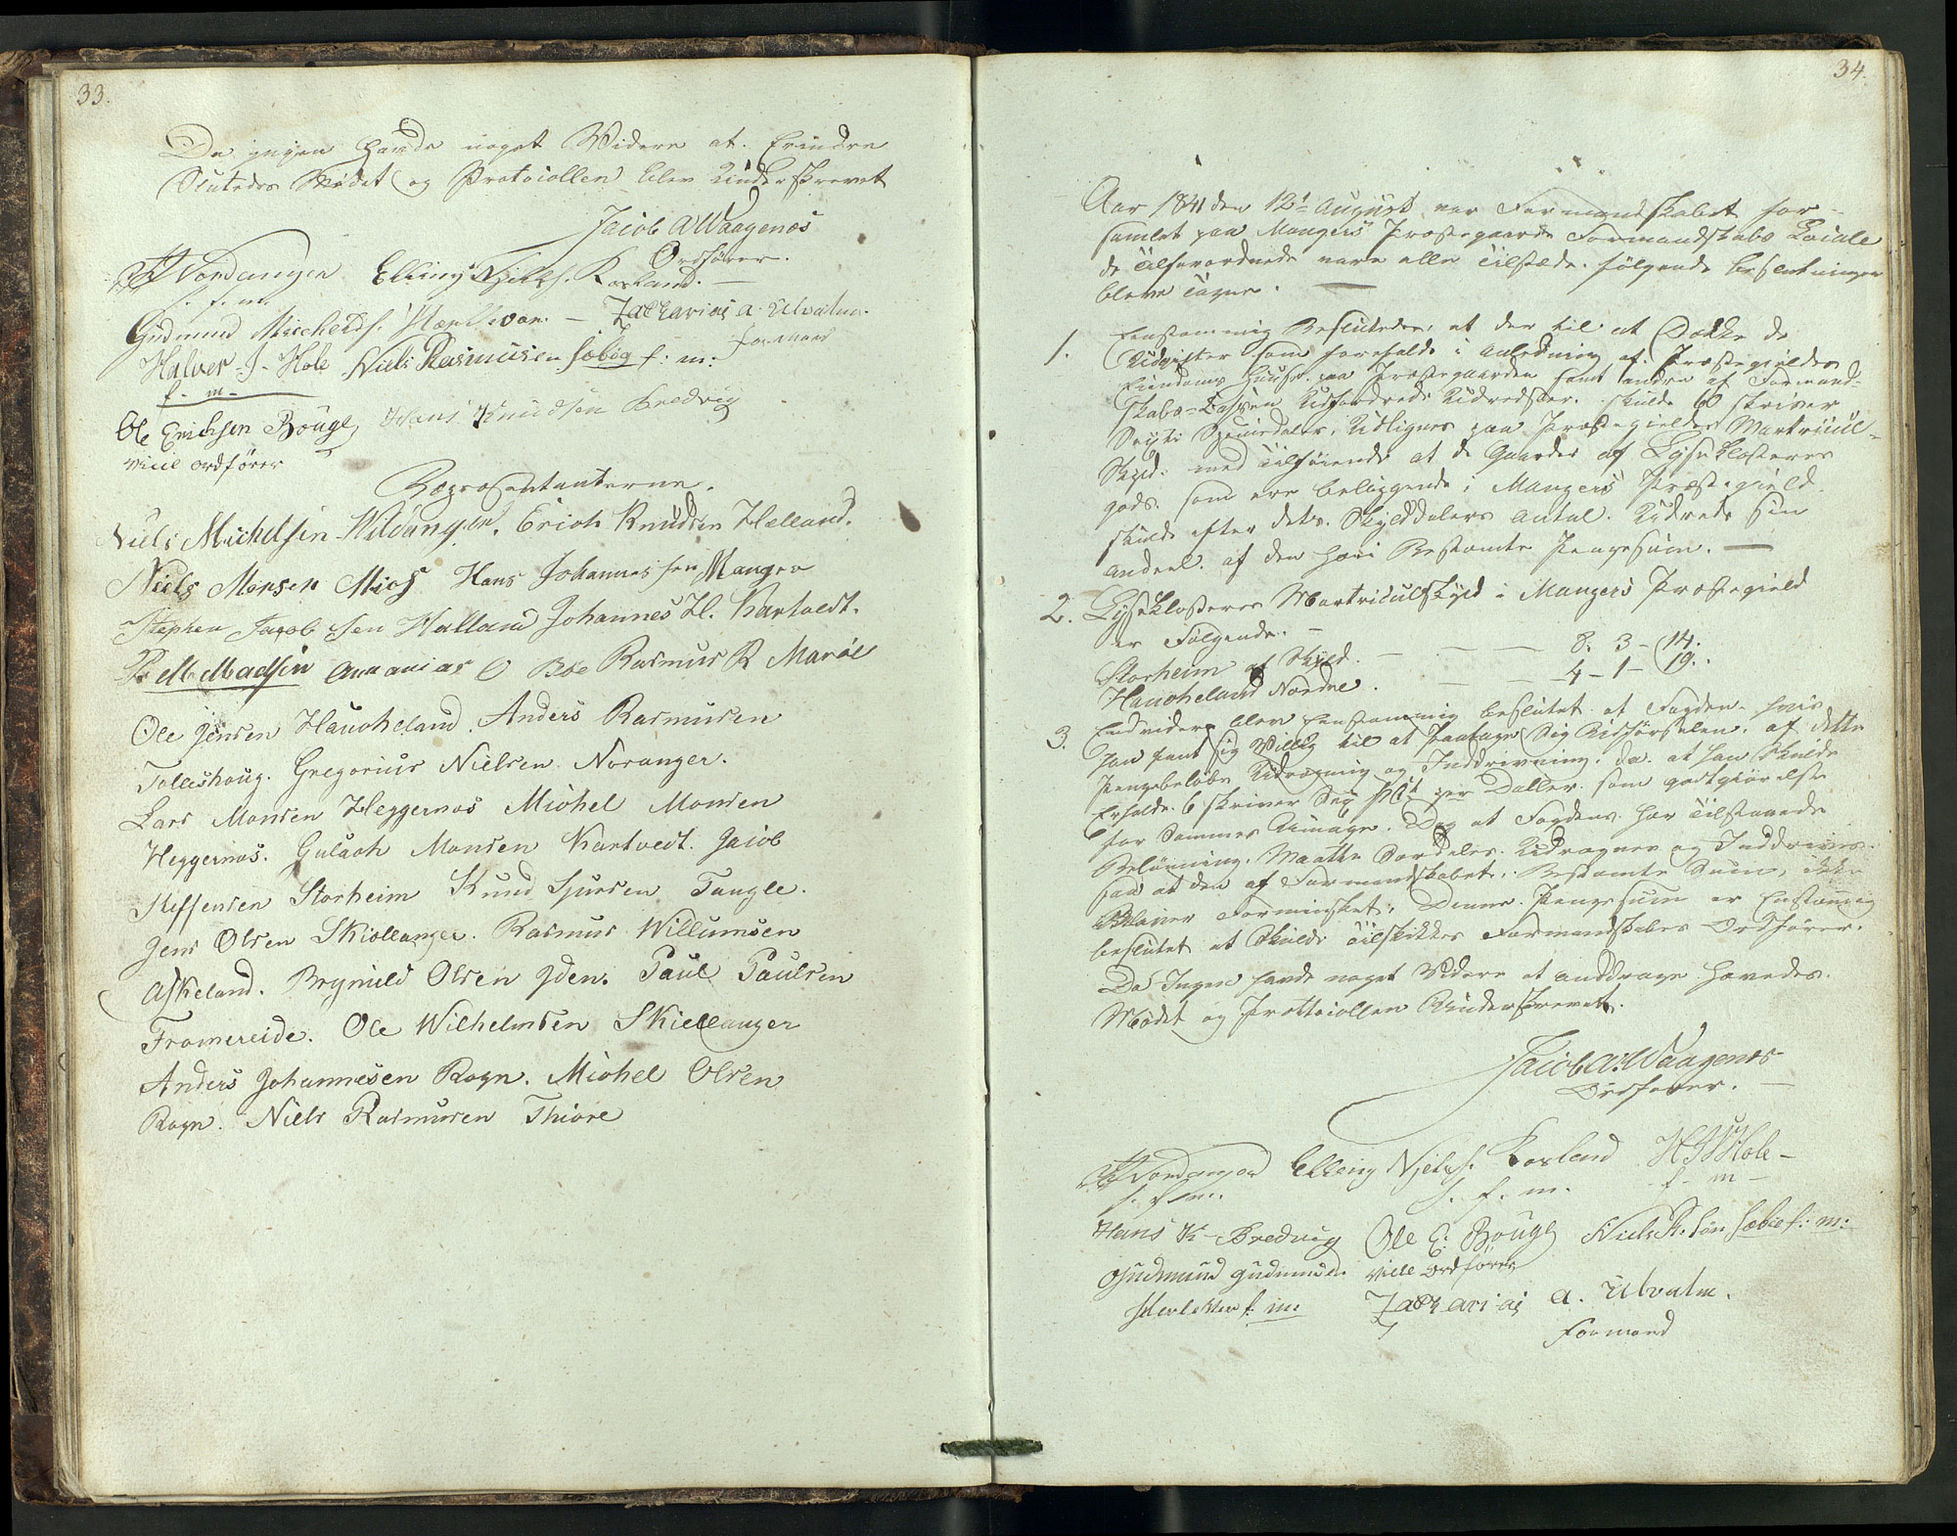 33.
Da ingen havde noget Widere at Erindre
Sluttedes Mødet og Protocollen blev Underskrevet
Jacob A Waagenæs
Ordfører.
Nordanger Elling Njelsf. Kosland.
f. m.
Gudmund Zacharias A. Ulvatn.
Formand
Halver J. Hole Niels Rasmusen Sæbøg f: m:
f. m.
Ole Erichsen Bøuge Hans Knudsen Bredvig
Vice Ordfører
Repræsentanterne.
Niels Michelsen Erich Knudsen Hælland.
Niels Monsen Mios Hans Johannessen Manger
Stephen Jacobsen Halland Johannes H. Kartvedt.
P. M. Madsen Annanias O Bøe Rasmus R Marøe
Ole Jensen Haucheland. Anders Rasmusen
Tolleshoug. Gregorius Nielsen Noranger.
Lars Monsen Heggernæs Michel Monsen
Heggernæs. Gulach Monsen Kartvedt. Jacob
Steffensen Storheim Knud Sjursen Tougle.
Jens Olsen Skiellanger. Rasmus Willumsen
Askeland. Brynild Olsen Yden. Paul Paulsen
Fromereide. Ole Wilhelmsen Skiellanger
Anders Johannesen Rogn. Michel Olsen
Rogn. Niels Rasmusen Thiore
34.
Aar 1841 den 12te August var Formandskabet for-
samlet paa Mangers Præstegaards Formandskabs Locale
de Tilforordnede vare alle Tilstæde. følgende beslutninger
bleve Tagne.
1. Eenstemmig Besluttedes, at der til at Dække de
Udgifter som forefalde i Anledning af Præstegieldets
Eiendoms Huuse paa Præstegaarden samt andre af Formand-
skabs-Cassen Udfordrede Udredsler. skulde 60 skriver
Sexti Speciedaler, Udlignes paa Præstegieldets Martricul-
Skyld. med Tilføiende at de Gaarder af Lyseklosteres
gods. som ere beliggende i Mangers Præstegield
skulde efter dets. Skylddalers Antal. Udrede sin
Andeel. af den heri Bestemte Pengesum.
2. Lyseklosteres Martriculskyld i Mangers Præstegield
er Følgende.
Storheim af Skyld. 8. 3 - 14.
Haucheland Nordre. 4 - 1 - 19.
3. Endvidere blev Eenstemmig beslutet at Fogden. hvis
han fant sig Villig til at paatage Sig Udførselen. af dette
Pengebeløbs Udregning og Inddrivning. da. at han Skulde
Erholde. 6 skriver Sex per Daller. som godtgiørelse
for Sammes Umage. Dog at Fogdens. her Tilstaaede
Belønning. Maatte Udregnes og Inddrives.
saa at den af Formandskabet. Bestemte Sum, ikke
bliver Forminsket. Denne. Pengesum er Enstemmig
beslutet at Skulde tilskikkes Formandskabets Ordfører.
Da Ingen havde noget Videre at anddrage Hævedes.
Mødet og Prottocollen Underskrevet.
Jacob A: Waagenæs
Ordfører.
Nordanger Elling Njelsf. Kosland H J Hole
f. m. f. m. f. m
Hans K Bredvig Ole E: Bøuge Niels R. søn Sæbøe f: m:
Gudmund Gudmunds. Vice Ordfører
f: m: Zacharias A. Ulvatn.
Formand